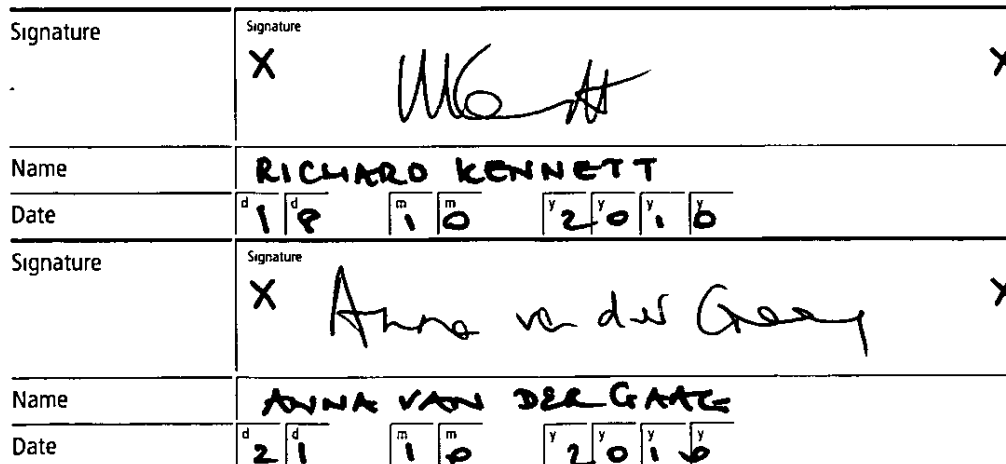 Signature Signature
X X
Name RICHARD KENNETT
Date d1 d8 m1 m0 y2 y0 y1 y0
Signature Signature
X Anna van der Gaag X
Name ANNA VAN DER GAAG
Date d2 d1 m1 m0 y2 y0 y1 y0